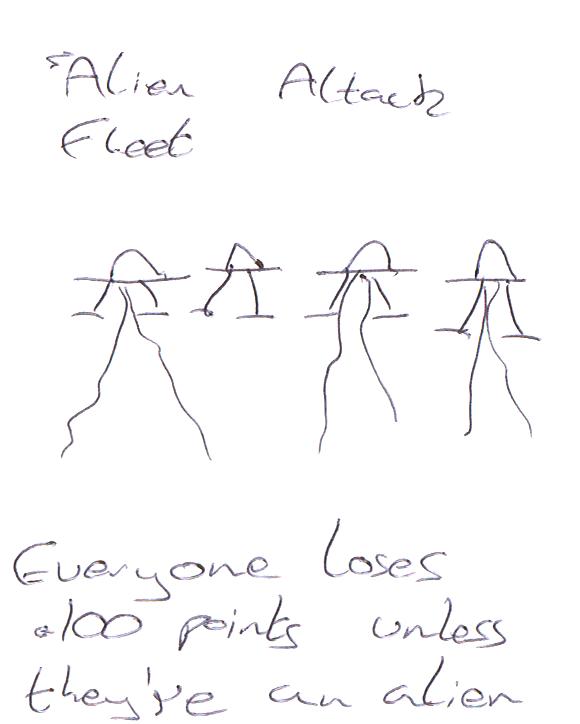 Alien Attack
Fleet
Everyone loses
100 points unless
they're an alien